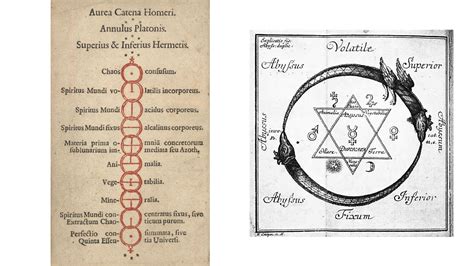 Aurea Catena Homeri.
Annulus Platonis.
Superius & Inferius Hermetis.
Chaos confusum.
Spiritus Mundi vo latilis incorporeus.
Spiritus Mundi acidus corporeus.
Spiritus Mundi fixus alcalinus corporeus.
Materia prima o concretorum
sublunarium im mediata seu Azoth,
Ani malia.
Vege tabilia.
Mine ralia.
Spiritus Mundi con centratus fixus, sive
Extractum Chao purum.
Perfectio con summata, sive
Quinta Essen tia Universi.
Volatile
Abyssus Superior
Abyssus
Abyssus Inferior
Fixum